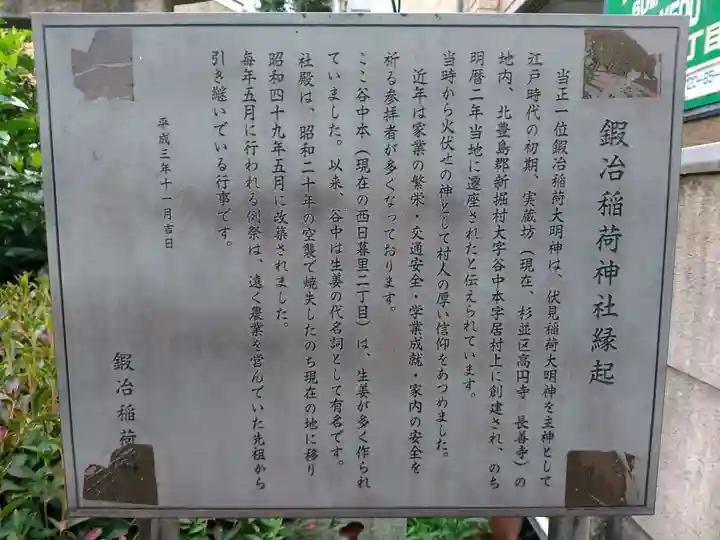 鍛冶稲荷神社縁起
当正一位鍛冶稲荷大明神は、伏見稲荷大明神を主神として
江戸時代の初期、実蔵坊(現在、杉並区高円寺 長善寺)の
地内、北豊島郡新堀村大字谷中本字居村上に創建され、のち
明暦二年当地に遷座されたと伝えられています。
当時から火伏せの神として村人の厚い信仰をあつめました。
近年は家業の繁栄・交通安全・学業成就・家内の安全を
祈る参拝者が多くなっております。
ここ谷中本(現在の西日暮里二丁目)は、生姜が多く作られ
ていました。以来、谷中は生姜の代名詞として有名です。
社殿は、昭和二十年の空襲で焼失したのち現在の地に移り
昭和四十九年五月に改築されました。
毎年五月に行われる例祭は、遠く農業を営んでいた先祖から
引き継いでいる行事です。
平成三年十一月吉日
鍛冶稲荷
丁目